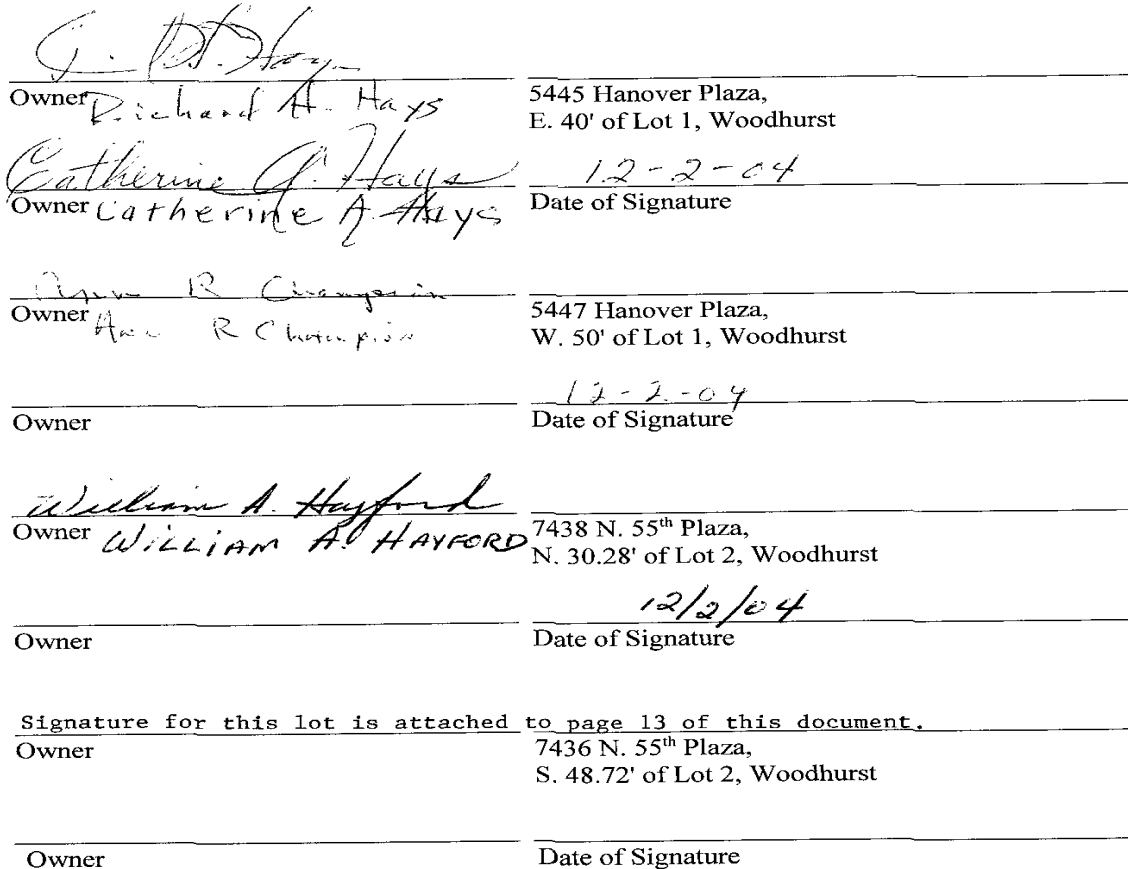 Hays
Owner Richard H. Hays
5445 Hanover Plaza,
E. 40' of Lot 1, Woodhurst
Catherine A. Hays 12-2-04
Owner Catherine A. Hays Date of Signature
R Champion
Owner Ann R Champion
5447 Hanover Plaza,
W. 50' of Lot 1, Woodhurst
12-2-04
Owner Date of Signature
William A. Hayford
Owner WILLIAM A. HAYFORD
7438 N. 55th Plaza,
N. 30.28' of Lot 2, Woodhurst
12/2/04
Owner Date of Signature
Signature for this lot is attached to page 13 of this document.
Owner 7436 N. 55th Plaza,
S. 48.72' of Lot 2, Woodhurst
Owner Date of Signature